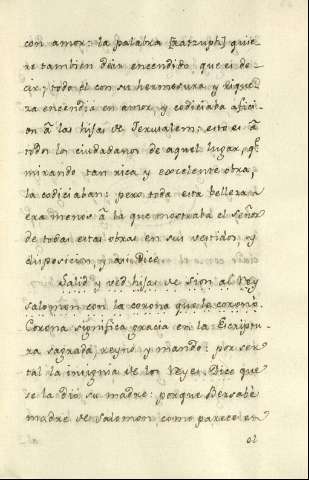 con amor: la palabra [ratzuph] quie-
re tambien deir encendido, que es de-
cir, todo el con su hermosura y rique-
za encendia en amor, y codiciaba afici-
on â las hijas de Jerusalem; esto es â
todos los ciudadanos de aquel lugar, q̃
mirando tan rica y escelente obra,
la codiciaban: pero toda esta belleza
era menos â la que mostraba el señor
de todas estas obras en sus vestidos, y
disposicion, y asi Dice
Salid y ved hijas de Sion al Rey
Salomon con la corona que le coronó.
Corona significa gracia en la Escriptu-
ra sagrada, reyno y mando: por ser
tal la insignia de los Reyes. Dice que
se la dió su madre: porque Bersabé
madre de Salomon, como parece en
el